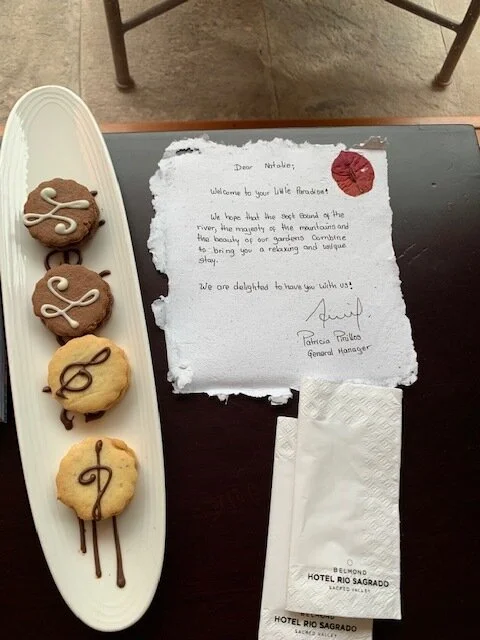 Dear Natalie;
Welcome to your Little Paradise!
We hope that the soft sound of the
river, the majesty of the mountains and
the beauty of our gardens combine
to bring you a relaxing and unique
stay.
We are delighted to have you with us!
Patricia Pinillos
General Manager
BELMOND
HOTEL RIO SAGRADO
SACRED VALLEY
BELMOND
HOTEL RIO SAGRADO
SACRED VALLEY